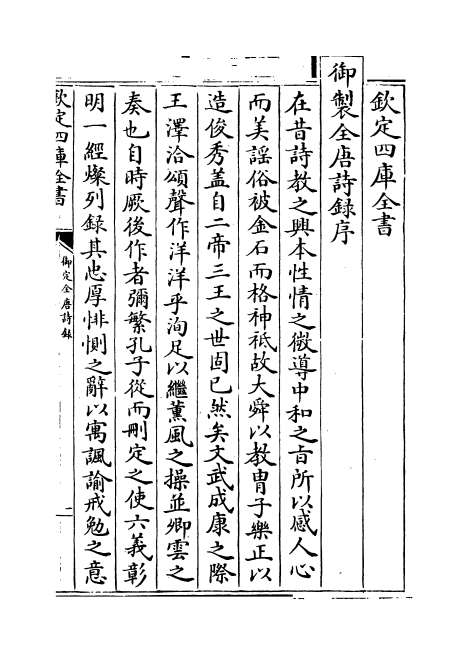 欽定四庫全書
御製全唐詩録序
在昔詩教之興本性情之微導中和之旨所以感人心
而美謡俗被金石而格神祇故大舜以教胄子樂正以
造俊秀盖自二帝三王之世固已然矣文武成康之際
王澤洽頌聲作洋洋乎洵足以繼薰風之操並卿雲之
奏也自時厥後作者彌繁孔子從而刪定之使六義彰
明一經燦列録其忠厚悱惻之辭以寓諷諭戒勉之意
欽定四庫全書
御定全唐詩録
一